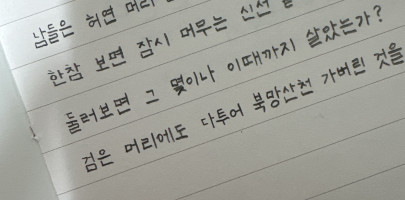 남들은 허연 머리
한참 보면 잠시 머무는 신선
둘러보면 그 몇이나 이때까지 살았는가?
검은 머리에도 다투어 북망산천 가버린 것을